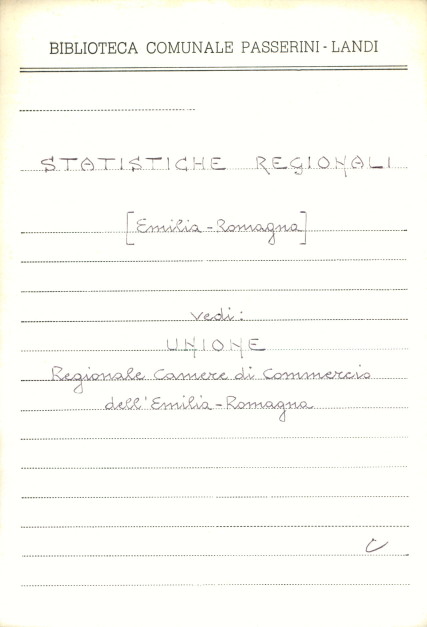 BIBLIOTECA COMUNALE PASSERINI-LANDI
STATISTICHE REGIONALI
[Emilia-Romagna]
vedi:
UNIONE
Regionale Camere di Commercio
dell'Emilia-Romagna
C